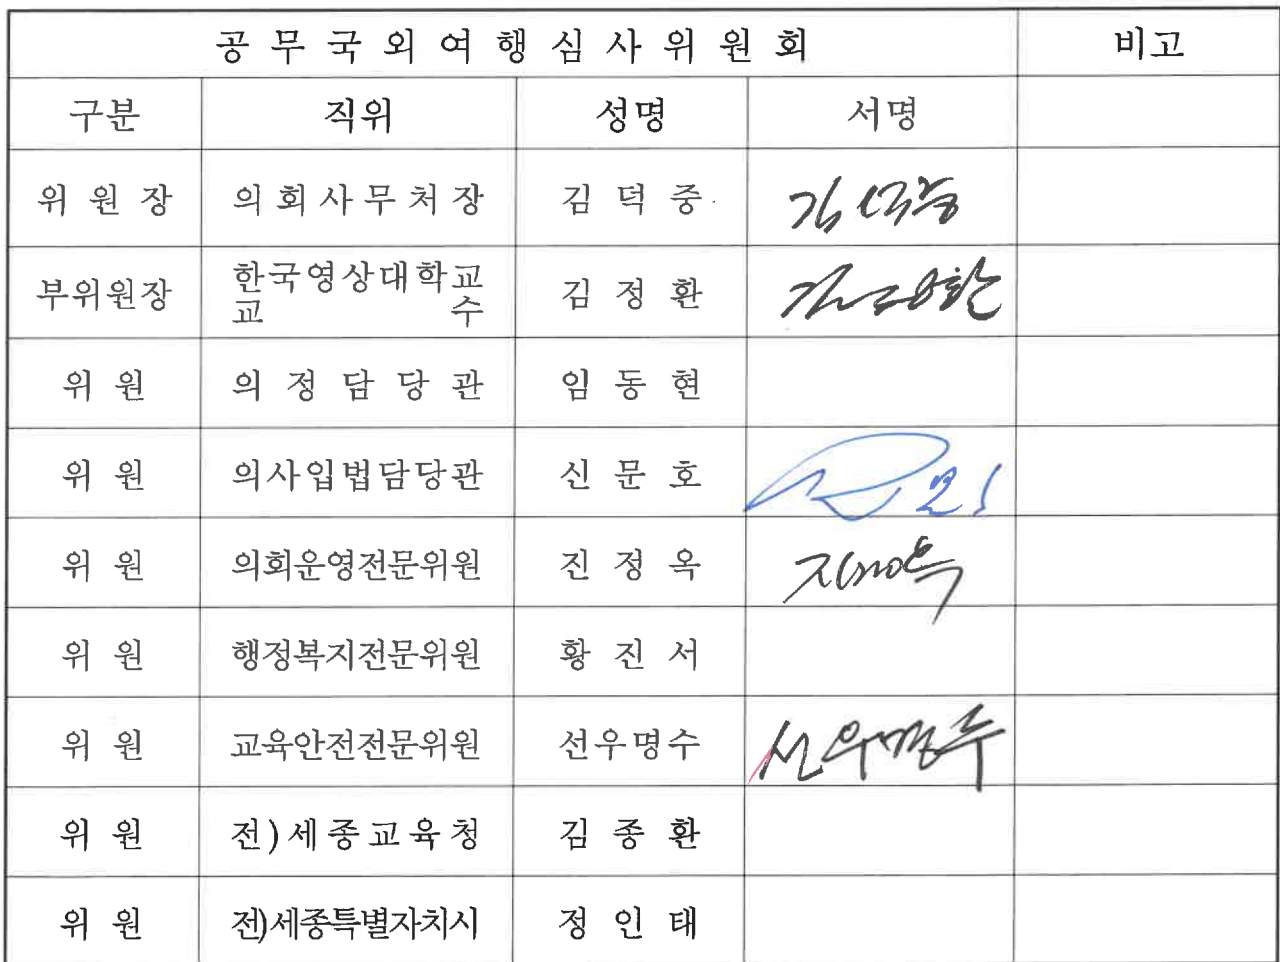 공 무 국 외 여 행 심 사 위 원 회 비고
구분 직위 성명 서명
위 원 장 의 회 사 무 처 장 김 덕 중 김덕중
부위원장 한국영상대학교 교 수 김 정 환 김정환
위 원 의 정 담 당 관 임 동 현
위 원 의사입법담당관 신 문 호
위 원 의회운영전문위원 진 정 옥
위 원 행정복지전문위원 황 진 서
위 원 교육안전전문위원 선우명수 선우명수
위 원 전)세종교육청 김 종 환
위 원 전)세종특별자치시 정 인 태